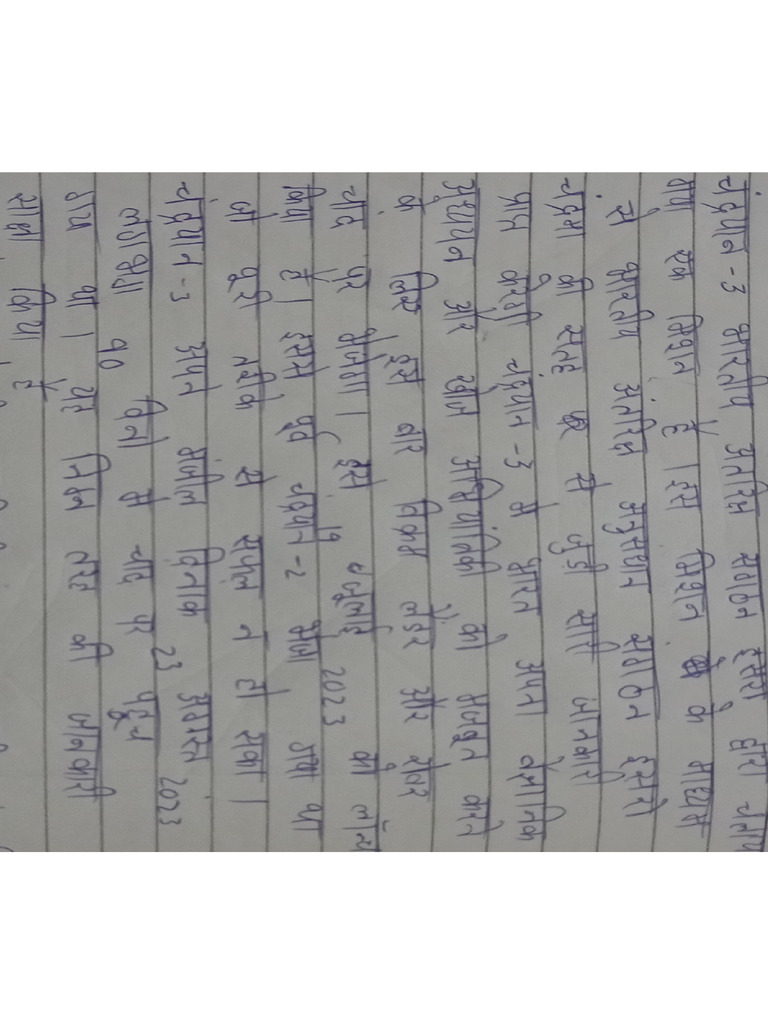 चंद्रयान-3 भारतीय अंतरिक्ष संगठन इसरो द्वारा चलाए
गया एक मिशन है। इस मिशन के माध्यम
से भारतीय अंतरिक्ष अनुसंधान संगठन इसरो
चंद्रमा की सतह से जुड़ी सारी जानकारी
प्राप्त करेगी चंद्रयान-3 से भारत अपना वैज्ञानिक
अध्ययन और खोज को मजबूत करने
के लिए इस बार विक्रम लेंडर और रोवर
चांद पर भेजेगा। इसे 14 जुलाई 2023 को लॉन्च
किया है। इससे पूर्व चंद्रयान-2 भेजा गया था
जो पूरी तरीके से सफल न हो सका।
चंद्रयान-3 अपने मंजिल दिनांक 23 अगस्त 2023
लगभग 40 दिनों में चांद पर पहुंच
गया था। यह निम्न तरह की जानकारी
साझा किया है